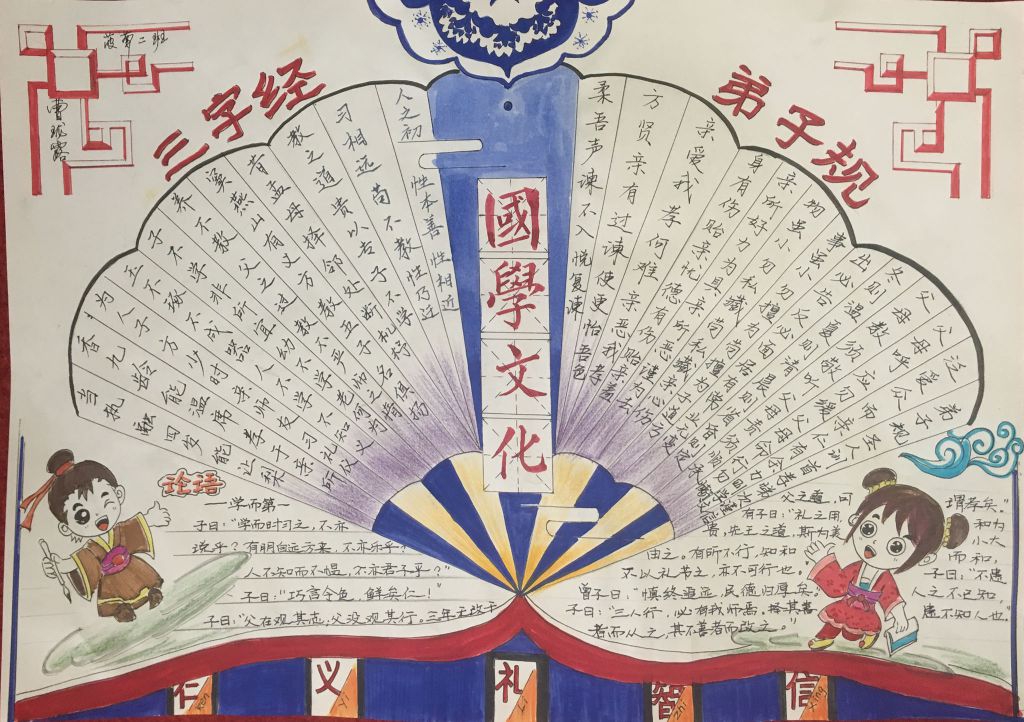 菠萝二班
三字经
弟子规
國學文化
人之初 性本善 性相近
习相远 苟不教 性乃迁
教之道 贵以专 子不学
昔孟母 择邻处 断机杼
窦燕山 有义方 教五子 名俱扬
养不教 父之过 教不严 师之
子不学 非所宜 幼不学 老何为
玉不琢 不成器 人不学 不知义
为人子 方少时 亲师友 习礼
香九龄 能温席 孝于亲 所
当执 融四岁 能让梨
弟子规 圣人训 首孝
泛爱众 而亲仁 有
父母呼 应勿缓 父母
父母教 须
冬则温 夏则清 晨则省
出必告 必面 居有
事虽小 勿擅 苟擅为
物虽小 勿私藏 苟私藏 亲心伤
亲所好 力为具 亲所恶 谨为去
身有伤 贻亲忧 德有伤 贻亲
亲爱我 孝何难 亲恶我 孝
方贤 亲有过 谏使更 怡吾色
柔吾声 谏不入 悦复谏
论语
—学而第一
子曰:“学而时习之,不亦
说乎?有朋自远方来,不亦乐乎?
人不知而不愠,不亦君子乎?”
子曰:“巧言令色,鲜矣仁!”
子曰:“父在观其志,父没观其行。三年无改于
父之道,可
谓孝矣。”
有子曰:“礼之用,
和为
贵,先王之道,斯为美
小大
由之。有所不行,知和
而和,
不以礼节之,亦不可行也。”
曾子曰:“慎终追远,民德归厚矣。”
子曰:“三人行,必有我师焉。择其善
者而从之,其不善者而改之。”
子曰:“不患
人之不己知,
患不知人也。”
仁 ren
义 yi
礼 li
智 zhi
信 xin